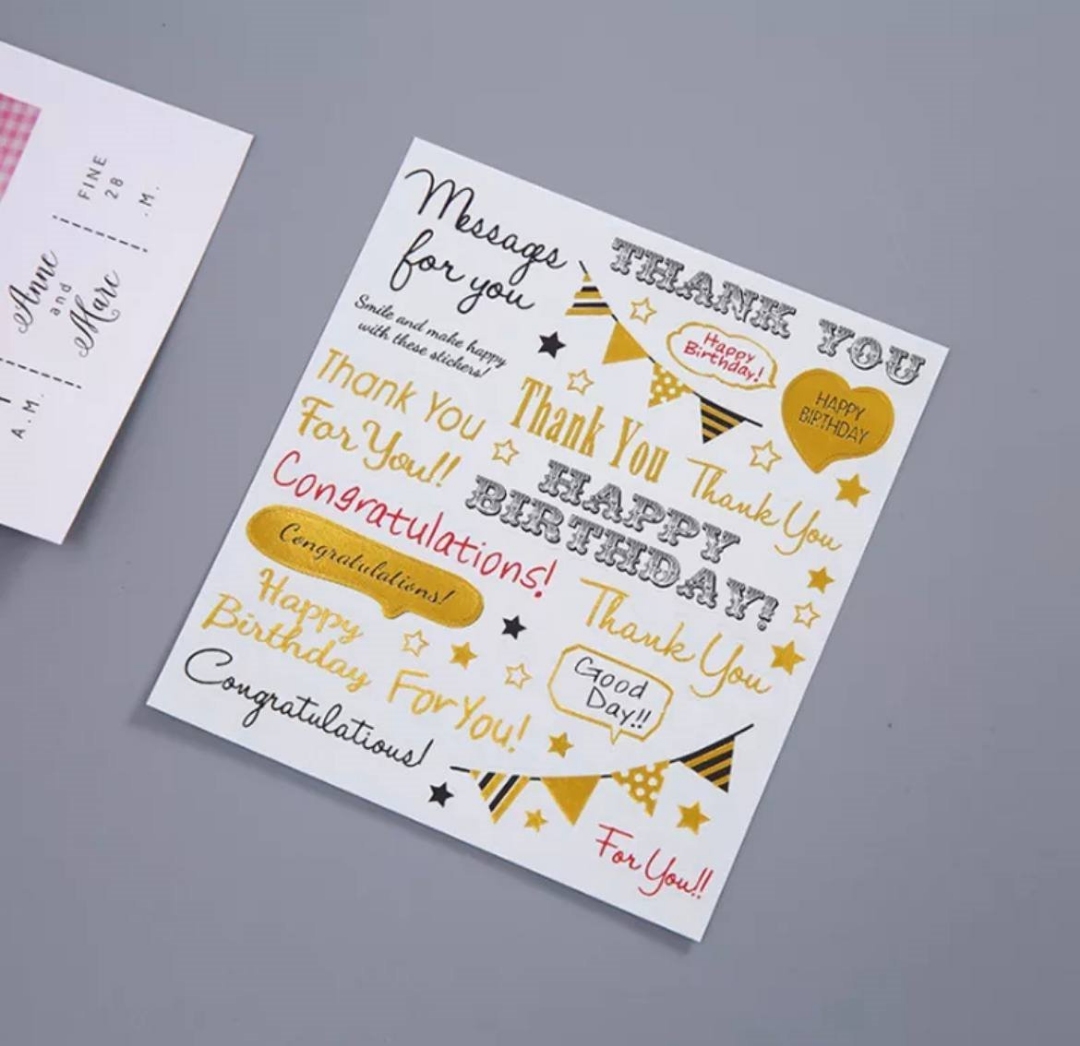 Messages
for you
Smile and make happy
with these stickers!
THANK YOU
Happy
Birthday!
HAPPY
BIRTHDAY
Thank You
For You!!
Thank You
Thank You
Congratulations!
HAPPY
BIRTHDAY!
Congratulations!
Happy
Birthday
Thank You
Good
Day!!
For You!
Congratulations!
For You!!
FINE
28
.M.
Anne
and
Marc
A.M.